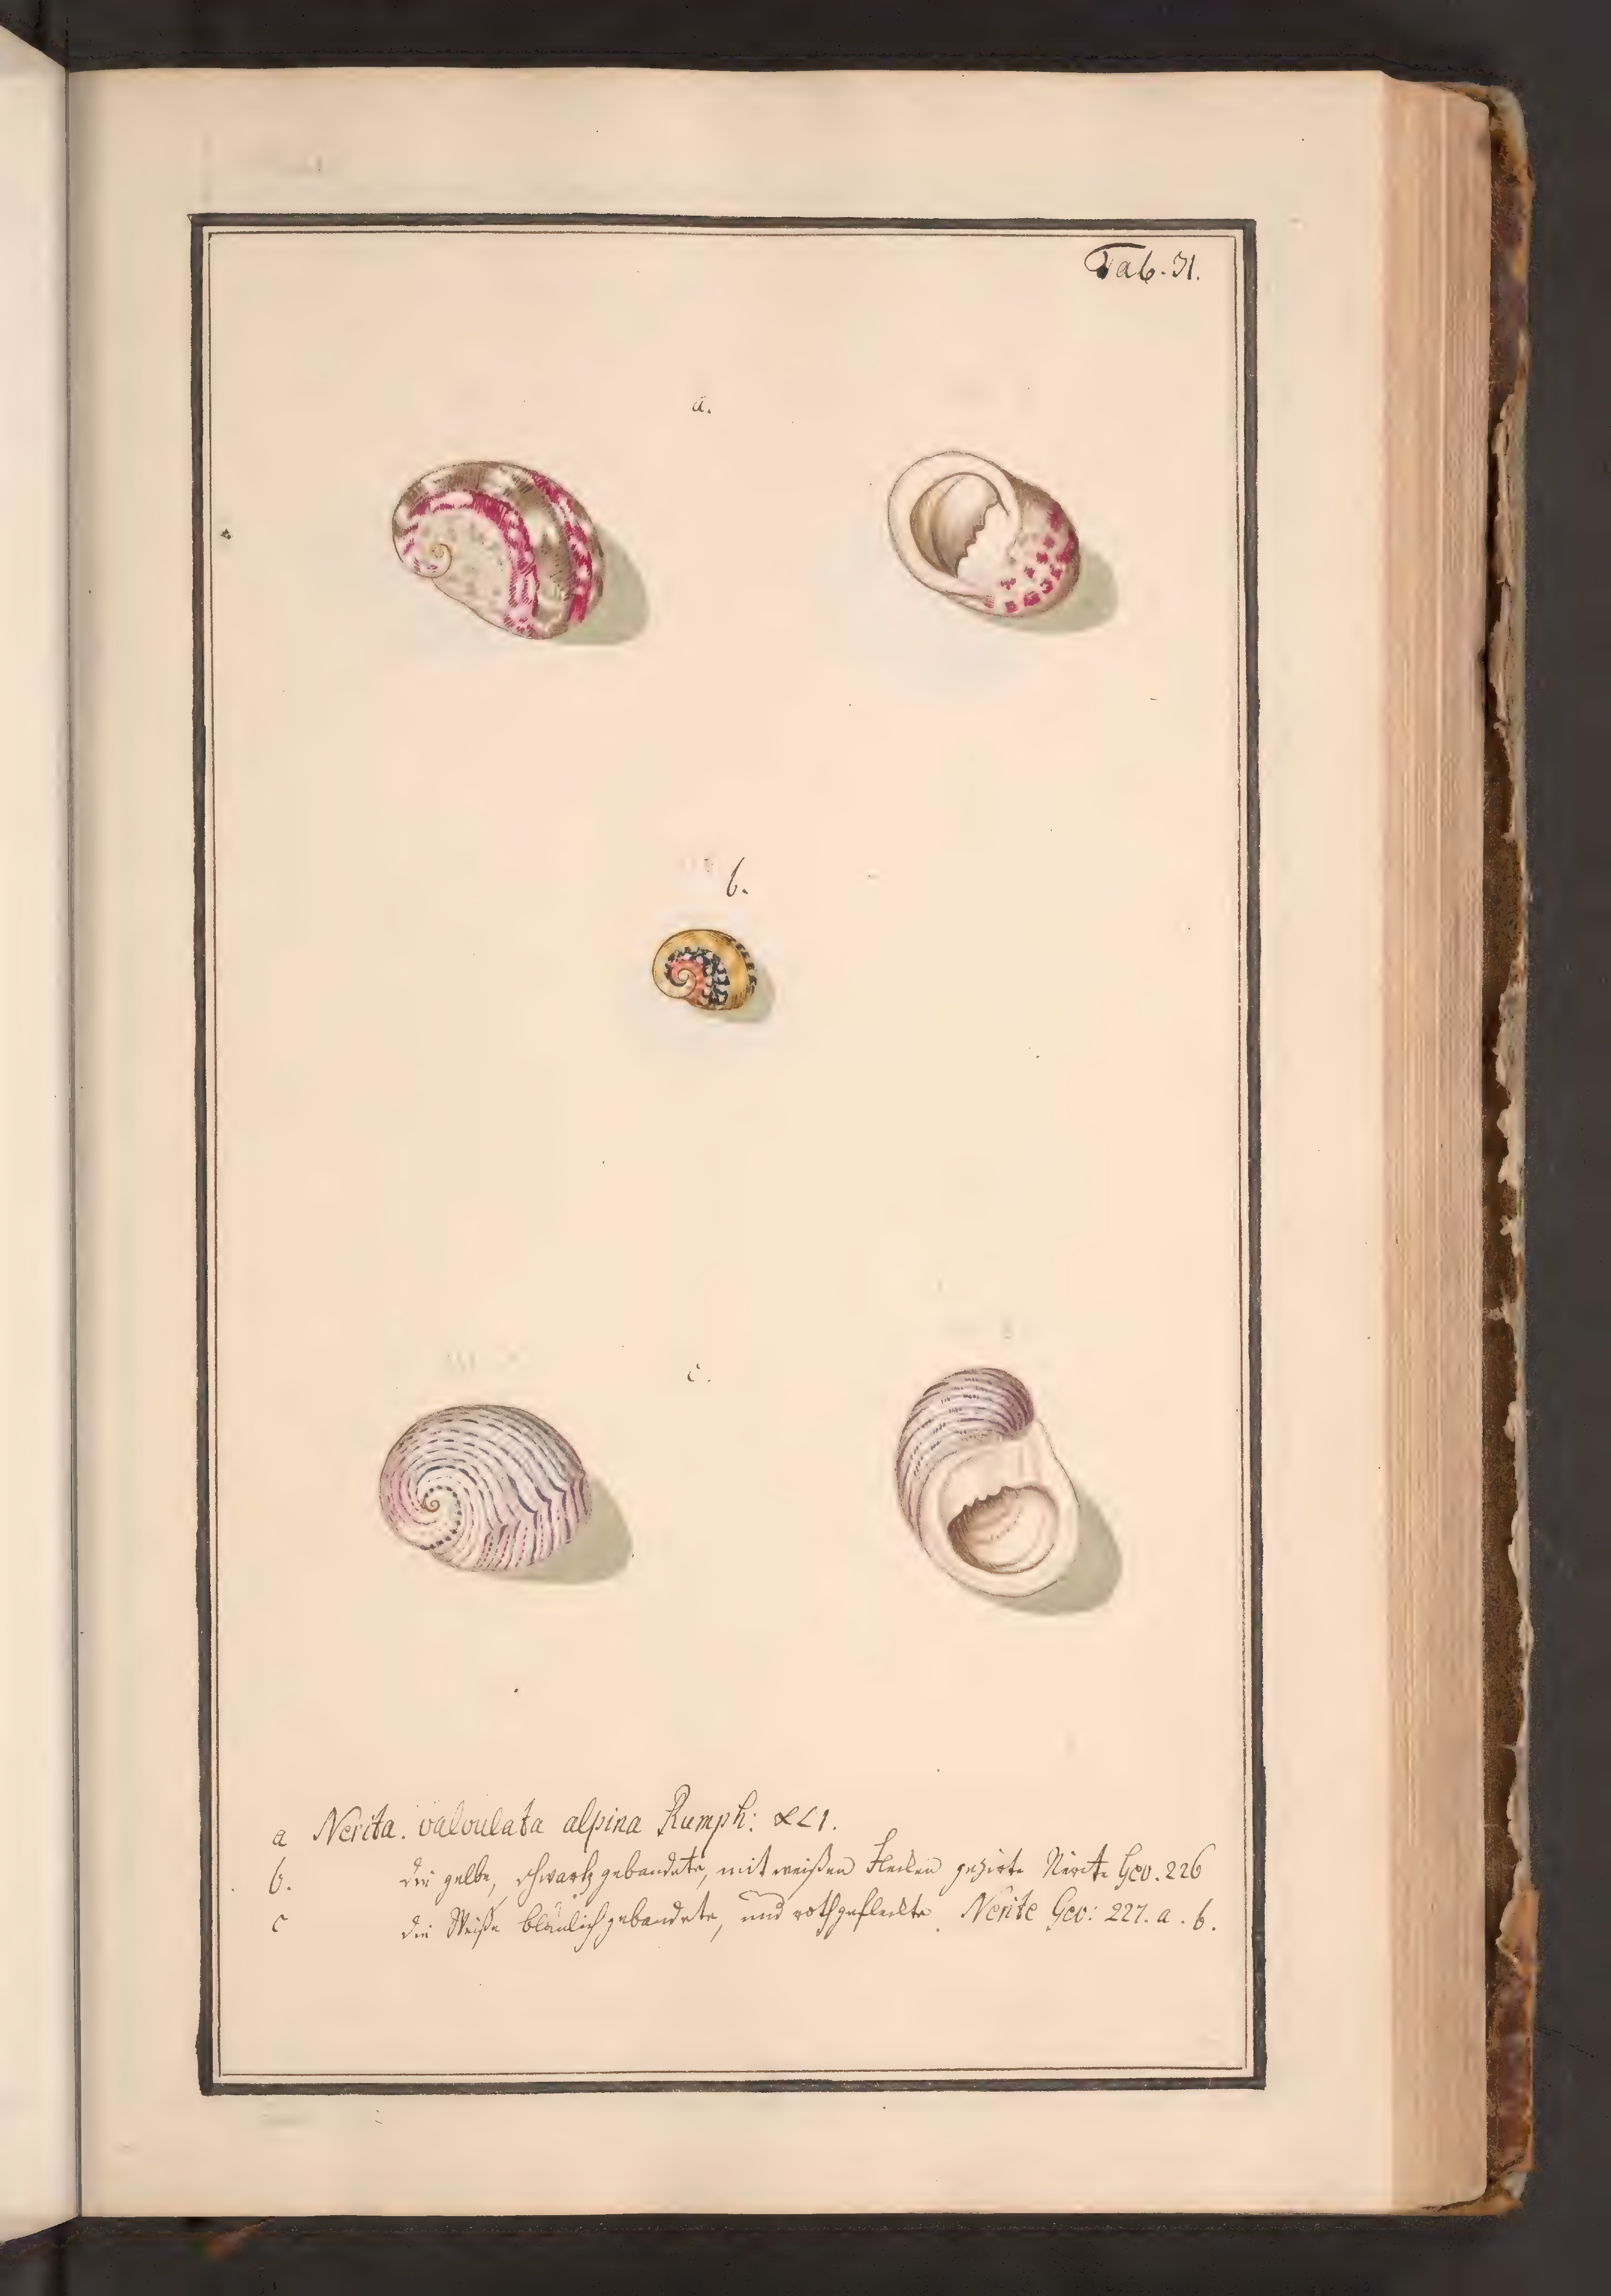 Tab. 31.
a.
b.
c.
a Nerita. valvulata alpina Rumph: XLI.
b. die gelbe, schwartz gebandete, mit weißen Flecken gezirte Nerite Gev. 226
c die Weiße bläulich gebandete, und roth gefleckte Nerite Gev: 227. a. b.